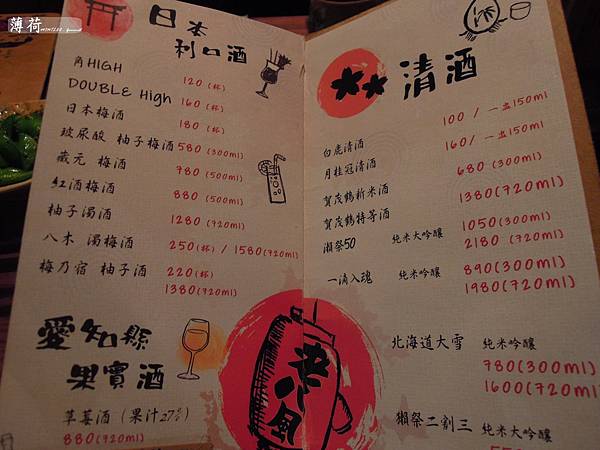 薄荷
日本
利口酒
角HIGH 120 (杯)
DOUBLE High 160 (杯)
日本梅酒 180 (杯)
玻尿酸 柚子梅酒 580 (300ml)
蔵元 梅酒 780 (500ml)
紅酒梅酒 880 (500ml)
柚子濁酒 1280 (720ml)
八木 濁梅酒 250(杯) / 1580(720ml)
梅乃宿 柚子酒 220(杯)
1380(720ml)
愛知縣
果實酒
草莓酒 (果汁27%)
880(720ml)
清酒
白鹿清酒 100 / 一盅150ml
月桂冠清酒 160/ 一盅150ml
賀茂鶴新米酒 680 (300ml)
賀茂鶴特等酒 1380(720ml)
瀨祭50 純米大吟釀 1050(300ml)
2180 (720ml)
一滴入魂 純米吟釀 890(300ml)
1980(720ml)
北海道大雪 純米吟釀
780(300ml)
1600(720ml)
獺祭二割三 純米大吟釀